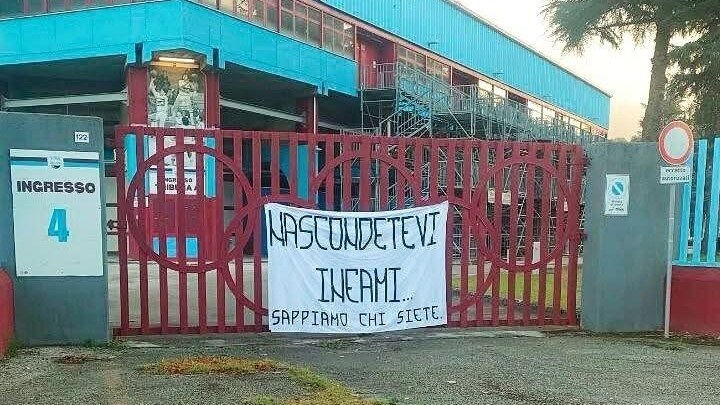 122
INGRESSO
4
NASCONDETEVI
INFAMI...
SAPPIAMO CHI SIETE.
eccetto
autorizzati